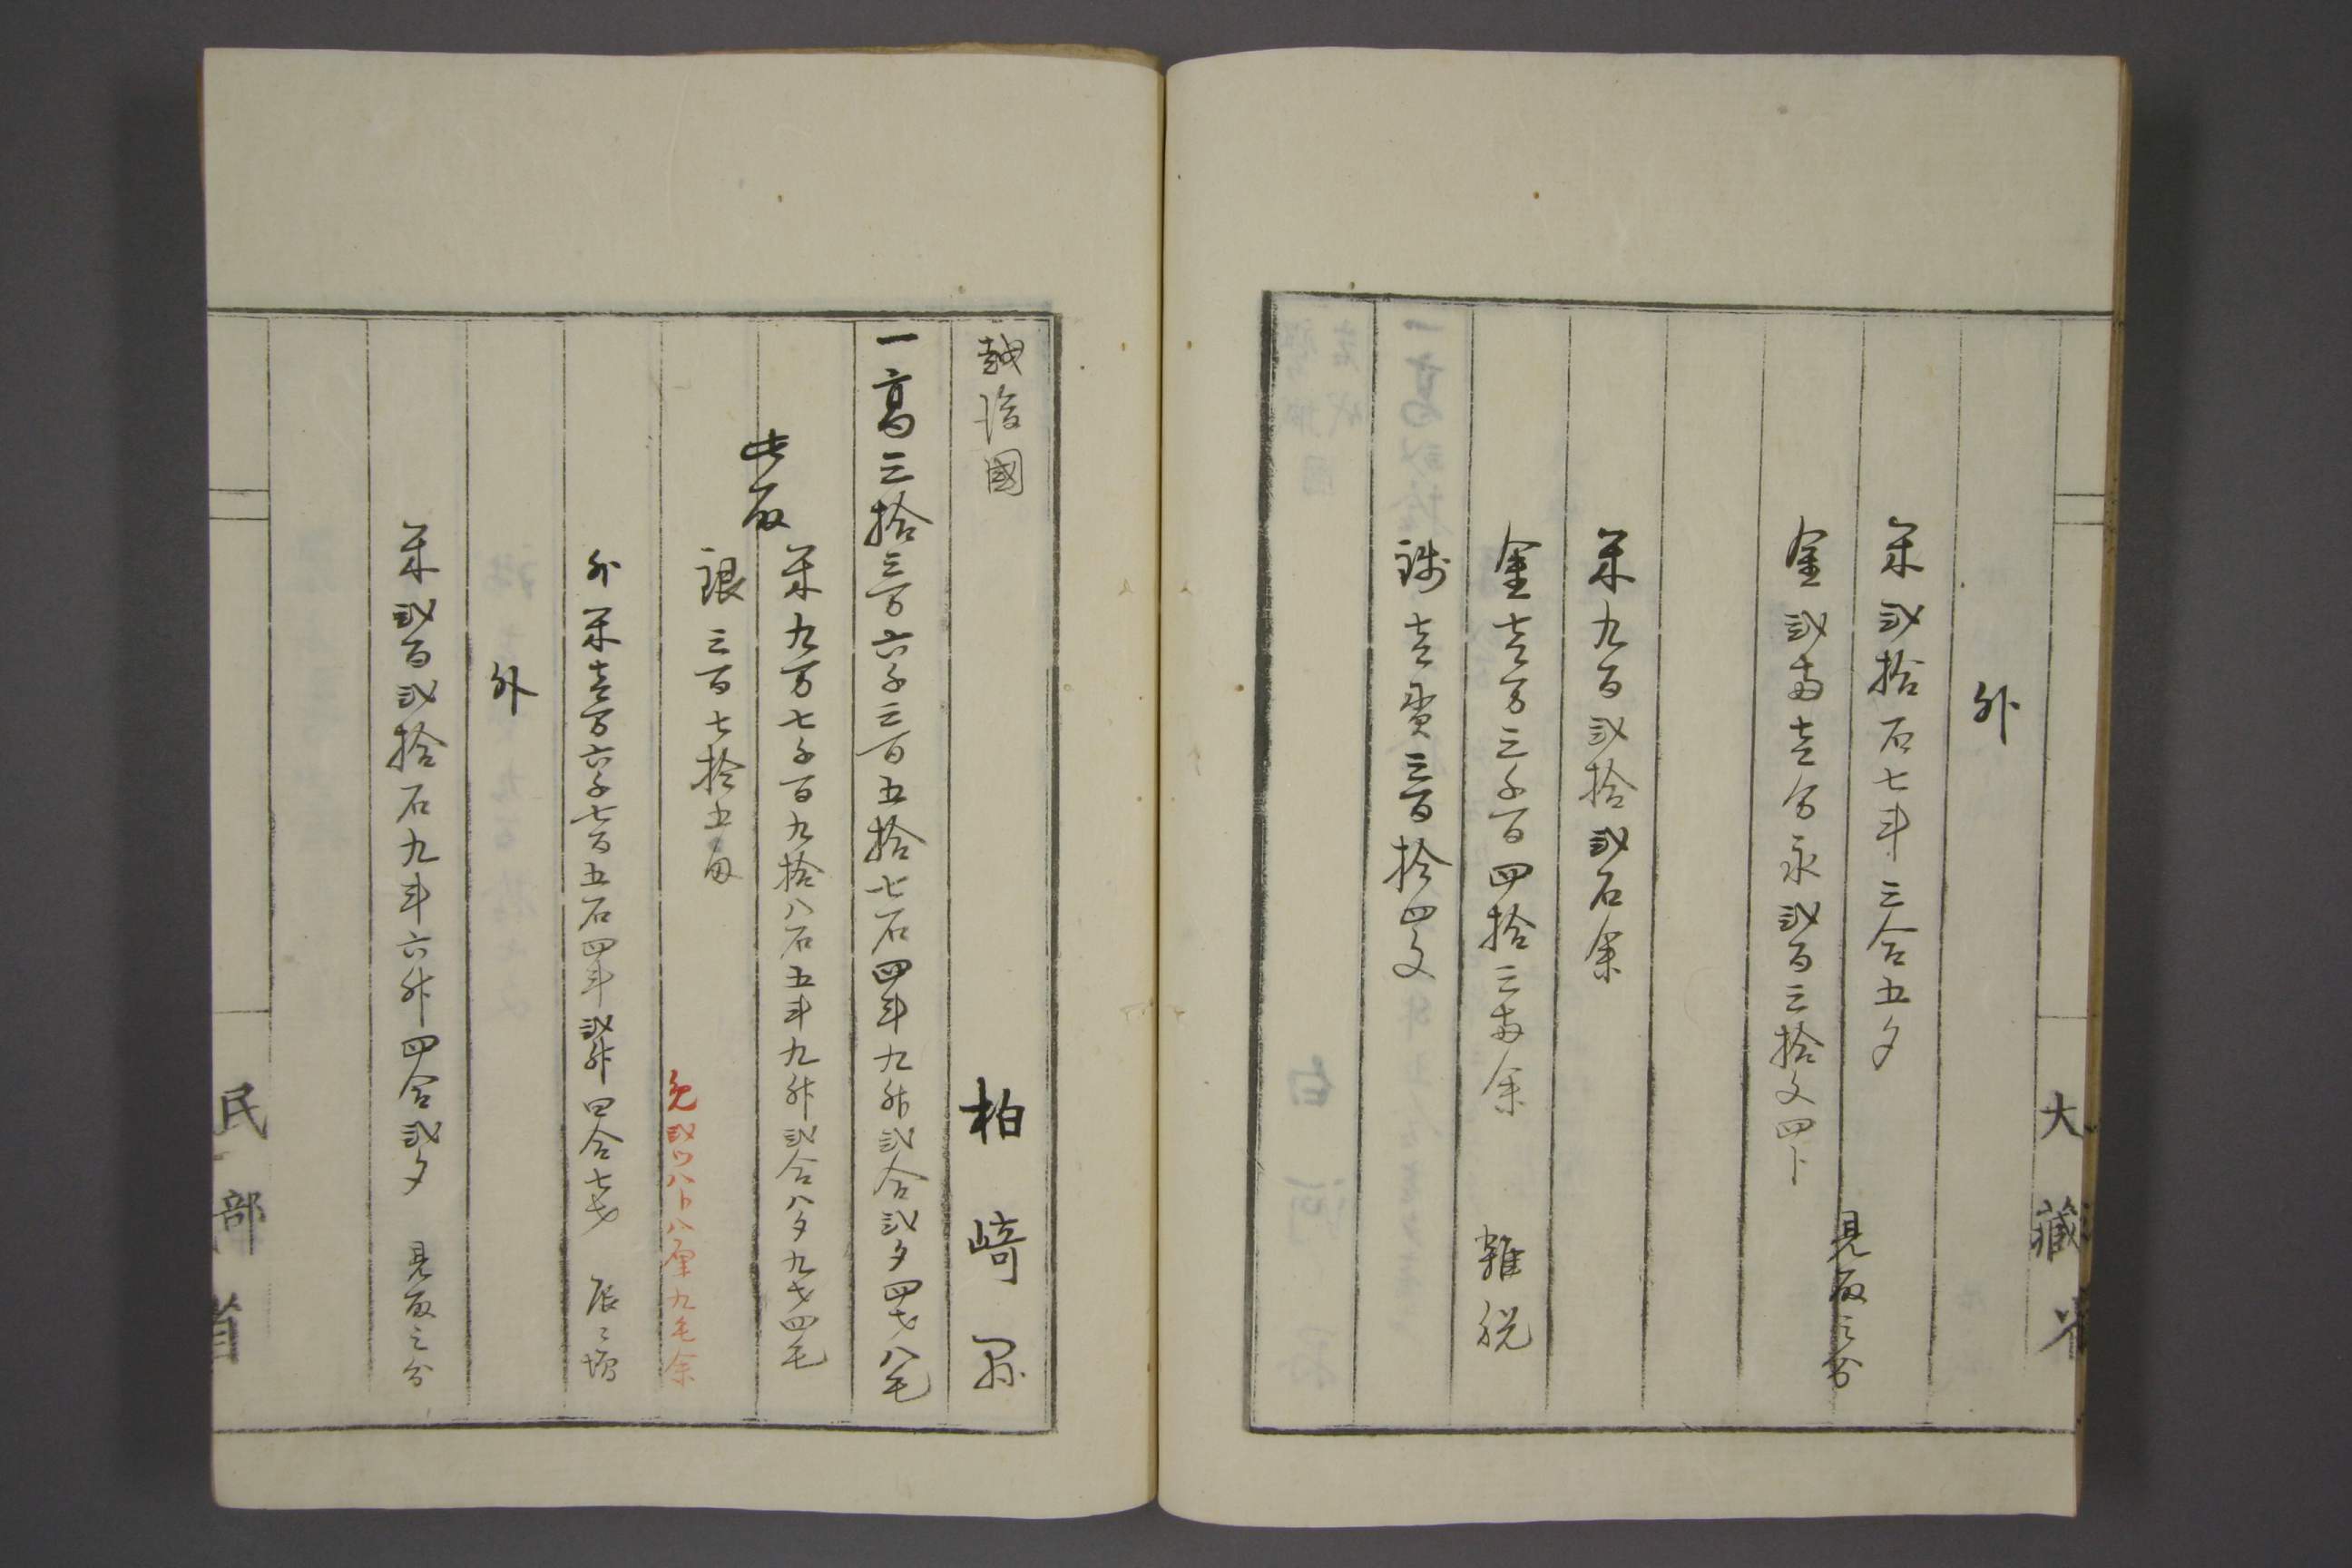 外
米弐拾石七斗三合五夕
金弐両壱分永弐百三拾文四卜
見取之分
米九百弐拾弐石余
金壱万三千百四拾三両余
雑税
銭壱貫三百拾四文
大藏省
越後國
柏崎县
一高三拾三万六千三百五拾七石四斗九升弐合弐夕四才八毛
此取
米九万七千百九拾八石五斗九升弐合八夕九才四毛
銀三百七拾五匁
免弐ツ八卜八厘九毛余
外米壱万六千七百五石四斗弐升四合七才
辰ゟ増
外
米弐百弐拾石九斗六升四合弐夕
見取之分
民部省